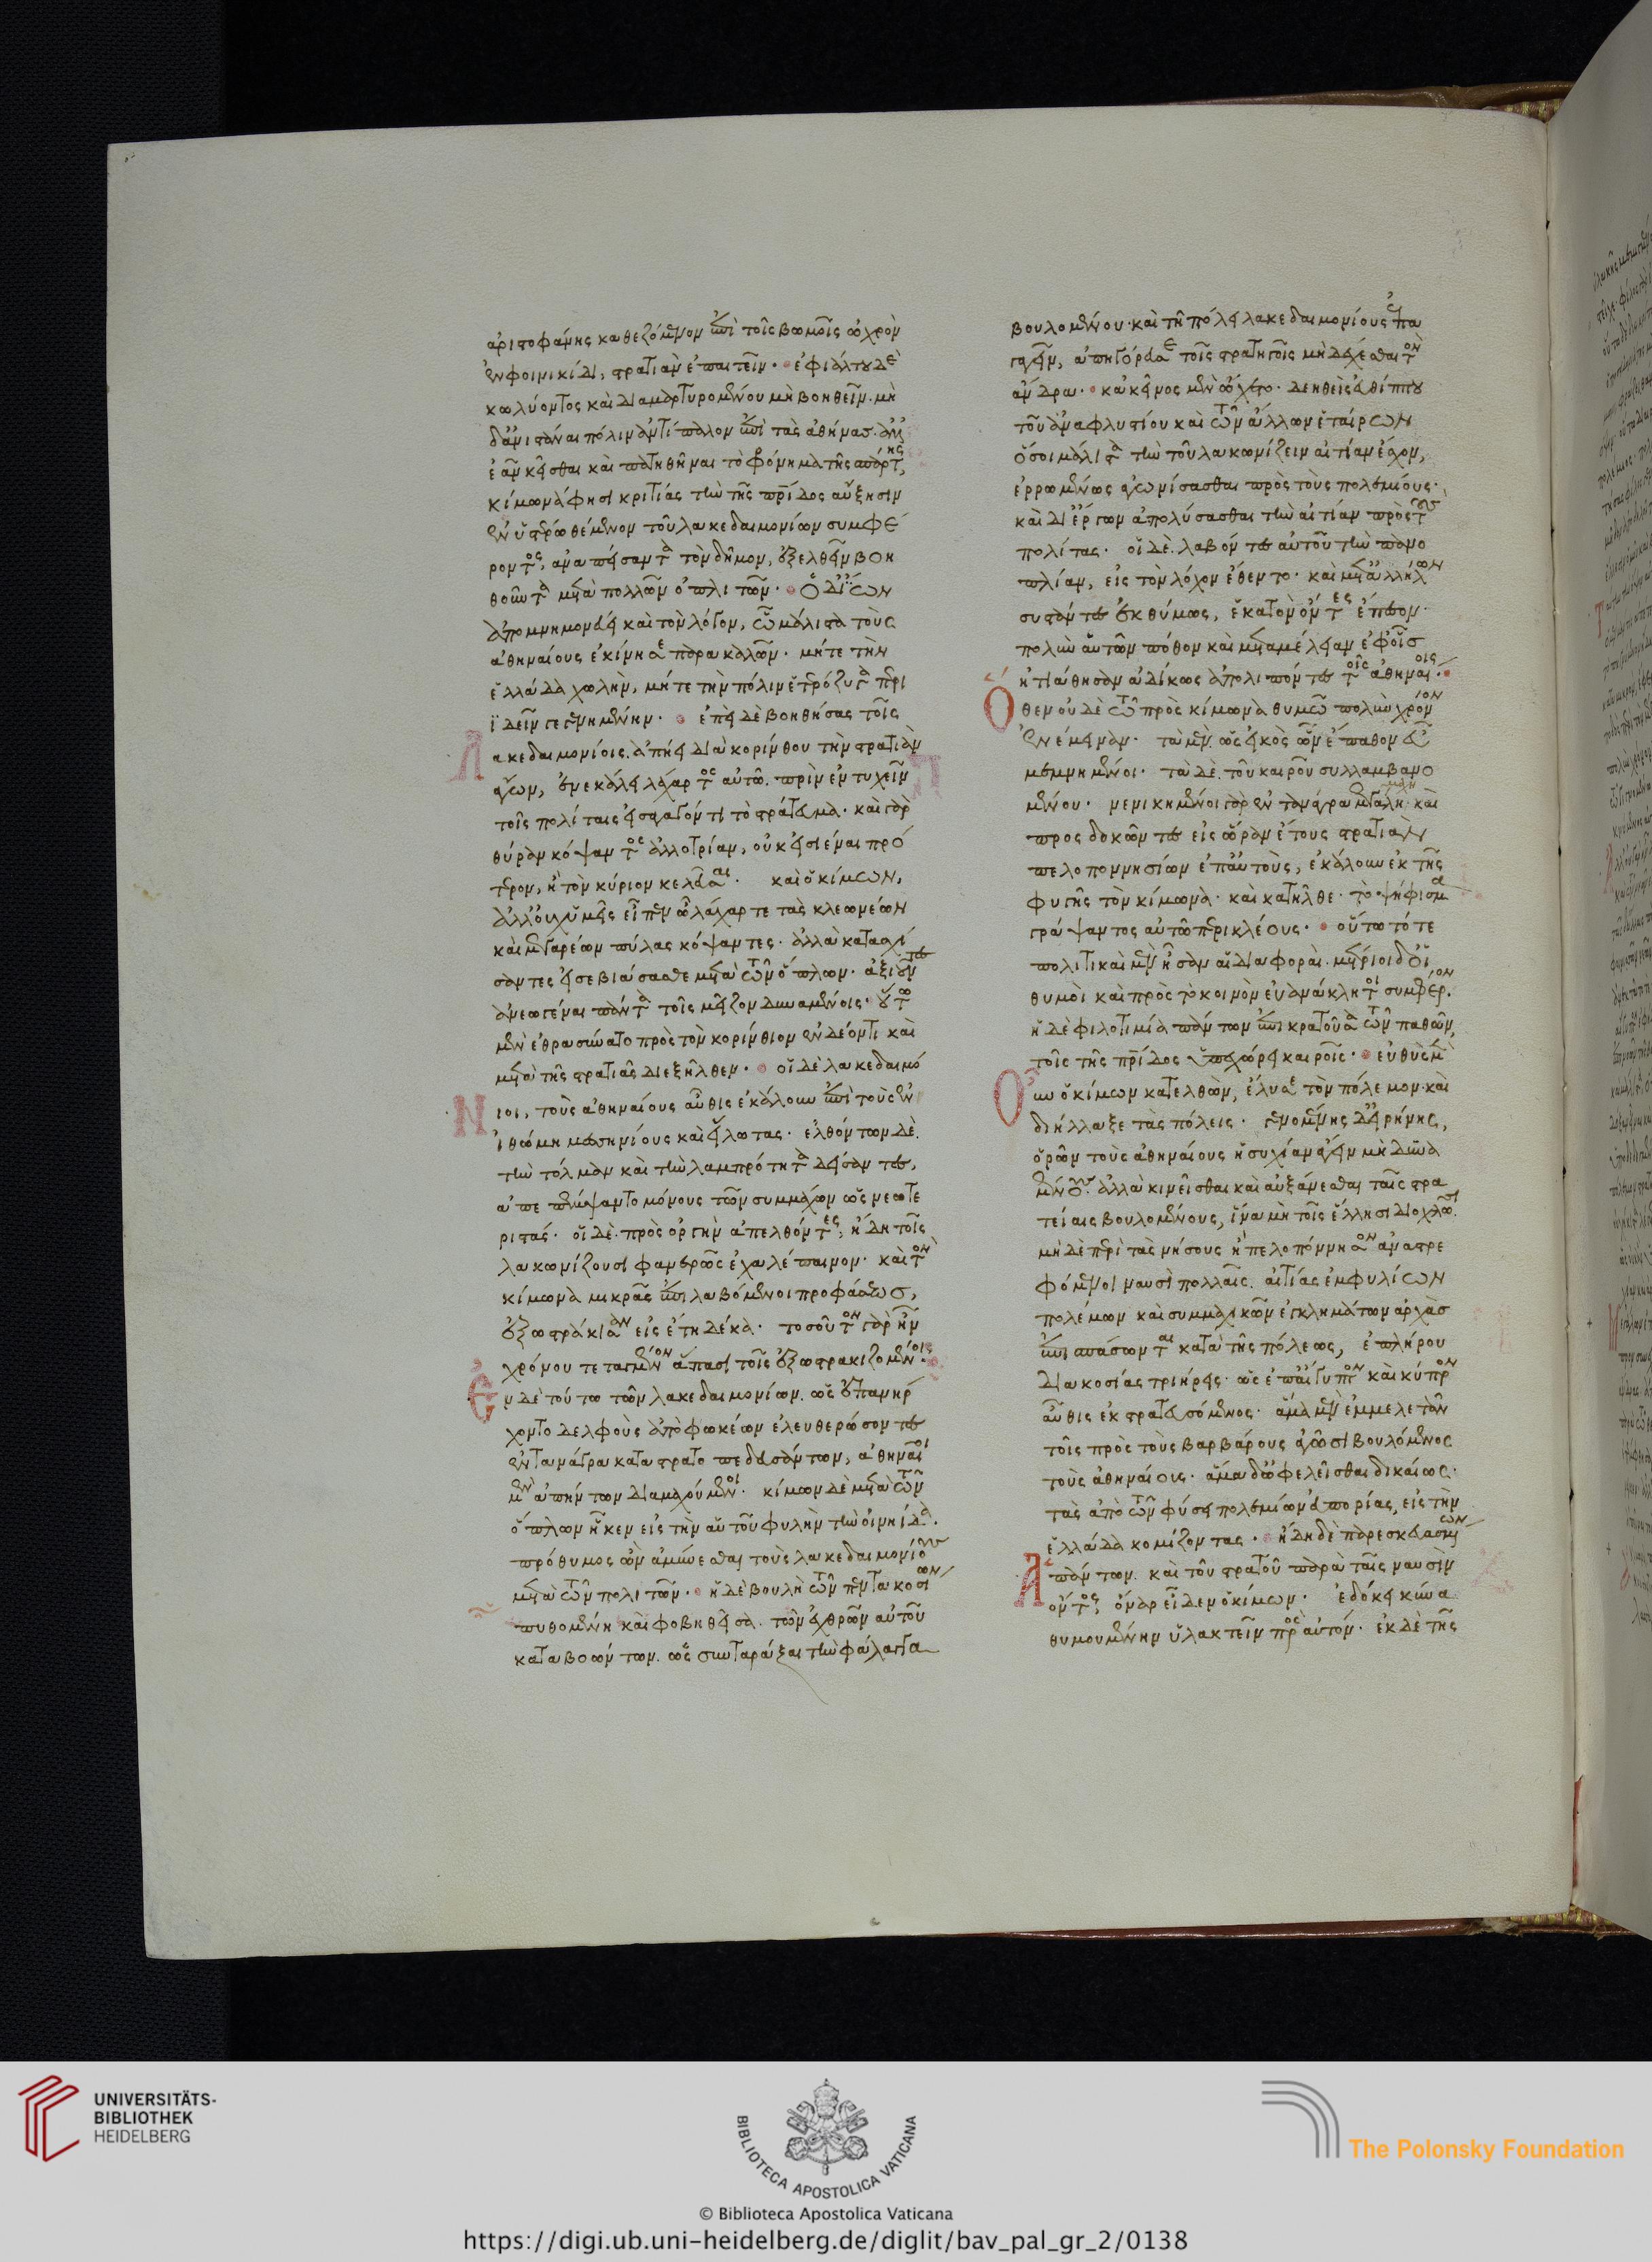 ἀριστοφάνης καθεζόμενον ἐπὶ τοῖς βωμοῖς ὠχρὸν
ἐν φοινικίδι, στρατιὰν ἐπαιτεῖν· ἐφιάλτου δὲ
κωλύοντος καὶ διαμαρτυρομένου μὴ βοηθεῖν. μὴ
δ' ἀνιστάναι πόλιν ἀντίπαλον ἐπὶ τὰς ἀθήνας· ἀλλ'
ἐᾶν κεῖσθαι καὶ πατηθῆναι τὸ φρόνημα τῆς σπάρτης,
κίμωνά φησι κριτίας τὴν τῆς πατρίδος αὔξησιν
ἐν ὑστέρῳ θέμενον τοῦ λακεδαιμονίων συμφέ
ροντος, ἀναπείσαντα τὸν δῆμον, ἐξελθεῖν βοη
θοῦντα μετὰ πολλῶν ὁπλιτῶν· ὁ δ' ἴων
ἀπομνημονεύει καὶ τὸν λόγον, ᾧ μάλιστα τοὺς
ἀθηναίους ἐκίνησε παρακαλῶν· μήτε τὴν
ἑλλάδα χωλὴν, μήτε τὴν πόλιν ἑτερόζυγα περι
ϊδεῖν γεγενημένην· ἐπεὶ δὲ βοηθήσας τοῖς
Λακεδαιμονίοις. ἀπήει διὰ κορίνθου τὴν στρατιὰν
ἄγων, ἐνεκάλει λάχαρτος αὐτῶ. πρὶν ἐντυχεῖν
τοῖς πολίταις εἰσαγαγόντι τὸ στράτευμα· καὶ γὰρ
θύραν κόψαντας ἀλλοτρίαν, οὐκ εἰσιέναι πρό
τερον, ἢ τὸν κύριον κελεῦσαι· καὶ ὁ κίμων,
ἀλλ' οὐχ ὑμεῖς εἶπεν ὦ λάχαρτε τὰς κλεωνέων
καὶ μεγαρέων πύλας κόψαντες· ἀλλὰ κατασχί
σαντες εἰσεβιάσασθε μετὰ τῶν ὅπλων· ἀξιοῦντες
ἀνεωγέναι πάντα τοῖς μεῖζον δυναμένοις· οὕτω
μὲν ἐθρασύνατο πρὸς τὸν κορίνθιον ἐν δέοντι καὶ
μετὰ τῆς στρατιᾶς διεξῆλθεν· οἱ δὲ λακεδαιμό
Νιοι, τοὺς ἀθηναίους αὖθις ἐκάλουν ἐπὶ τοὺς ἐν
ἰθώμη μεσσηνίους καὶ εἵλωτας· ἐλθόντων δὲ.
τὴν τόλμαν καὶ τὴν λαμπρότητα δείσαντες,
ἀπεπέμψαντο μόνους τῶν συμμάχων ὡς νεωτε
ριστάς· οἱ δὲ. πρὸς ὀργὴν ἀπελθόντες, ἤδη τοῖς
λακωνίζουσι φανερῶς ἐχαλέπαινον· καὶ τὸν
κίμωνα μικρᾶς ἐπιλαβόμενοι προφάσεως,
ἐξωστράκισαν εἰς ἔτη δέκα· τοσοῦτον γὰρ ἦν
χρόνου τεταγμένον ἅπασι τοῖς ἐξωστρακιζομένοις·
Ἐν δὲ τούτω τῶν λακεδαιμονίων. ὡς ἐπανήρ
χοντο δελφοὺς ἀπὸ φωκέων ἐλευθερώσαντες
ἐν τανάγρα καταστρατοπεδευσάντων, ἀθηναῖοι
μὲν ἀπήντων διαμαχούμενοι· κίμων δὲ μετὰ τῶν
ὅπλων ἧκεν εἰς τὴν αὑτοῦ φυλὴν τὴν οἰνηίδα.
πρόθυμος ὢν ἀμύνεσθαι τοὺς λακεδαιμονίους
μετὰ τῶν πολιτῶν· ἡ δὲ βουλὴ τῶν πεντακοσίων
πυθομένη καὶ φοβηθεῖσα. τῶν ἐχθρῶν αὐτοῦ
καταβοώντων. ὡς συνταράξαι τὴν φάλαγγα
βουλομένου· καὶ τῆ πόλει λακεδαιμονίους ἐπα
γαγεῖν, ἀπηγόρευσε τοῖς στρατηγοῖς μὴ δέχεσθαι τὸν
ἄνδρα· κἀκεῖνος μὲν ὤχετο· δεηθεὶς εὐθίππου
τοῦ ἀναφλυστίου καὶ τῶν ἄλλων ἑταίρων
ὅσοι μάλιστα τὴν τοῦ λακωνίζειν αἰτίαν ἔσχον,
ἐρρωμένως ἀγωνίσασθαι πρὸς τοὺς πολεμίους·
καὶ δι' ἔργων ἀπολύσασθαι τὴν αἰτίαν πρὸς τοὺς
πολίτας· οἱ δὲ. λαβόντες αὐτοῦ τὴν πανο
πλίαν, εἰς τὸν λόχον ἔθεντο· καὶ μετ' ἀλλήλων
συστάντες ἐκθύμως, ἑκατὸν ὄντες ἔπεσον·
πολὺν αὑτῶν πόθον καὶ μεταμέλειαν ἐφ' οἷς
ἠτιάθησαν ἀδίκως ἀπολιπόντες τοῖς ἀθηναίοις·
Ὅθεν οὐδὲ τῶ πρὸς κίμωνα θυμῶ πολὺν χρόνον
ἐνέμειναν· τὰ μὲν. ὡς εἰκὸς ὧν ἔπαθον εὖ
μεμνημένοι· τὰ δὲ. τοῦ καιροῦ συλλαμβανο
μένου· νενικημένοι γὰρ ἐν τανάγρα μεγάλη καὶ
προσδοκῶντες εἰς ὥραν ἔτους στρατιὰν
πελοποννησίων ἐπ' αὐτοὺς, ἐκάλουν ἐκ τῆς
φυγῆς τὸν κίμωνα· καὶ κατῆλθε· τὸ ψήφισμα
γράψαντος αὐτῶ περικλέους· οὕτω τότε
πολιτικαὶ μὲν ἦσαν αἱ διαφοραὶ· μέτριοι δ' οἱ
θυμοὶ καὶ πρὸς τὸ κοινὸν εὐανάκλητοι συμφέρον.
ἡ δὲ φιλοτιμία πάντων ἐπικρατοῦσα τῶν παθῶν,
τοῖς τῆς πατρίδος ὑπεχώρει καιροῖς· εὐθὺς μὲν
Οὖν ὁ κίμων κατελθὼν, ἔλυσε τὸν πόλεμον· καὶ
διήλλαξε τὰς πόλεις· γενομένης δ' εἰρήνης,
ὁρῶν τοὺς ἀθηναίους ἡσυχίαν ἄγειν μὴ δυνα
μένους. ἀλλὰ κινεῖσθαι καὶ αὐξάνεσθαι ταῖς στρα
τείαις βουλομένους, ἵνα μὴ τοῖς ἕλλησι διοχλῶσι.
μὴ δὲ περὶ τὰς νήσους ἢ πελοπόννησον ἀναστρε
φόμενοι ναυσὶ πολλαῖς. αἰτίας ἐμφυλίων
πολέμων καὶ συμμαχικῶν ἐγκλημάτων ἀρχὰς
ἐπισπάσωνται κατὰ τῆς πόλεως, ἐπλήρου
διακοσίας τριήρεις· ὡς ἐπ' αἴγυπτον καὶ κύπρον
αὖθις ἐκστρατευσόμενος· ἅμα μὲν ἐμμελετᾶν
τοῖς πρὸς τοὺς βαρβάρους ἀγῶσι βουλόμενος
τοὺς ἀθηναίους. ἅμα δ' ὠφελεῖσθαι δικαίως·
τὰς ἀπὸ τῶν φύσει πολεμίων εὐπορίας, εἰς τὴν
ἑλλάδα κομίζοντας· ἤδη δὲ παρεσκευασμένων
Ἁπάντων. καὶ τοῦ στρατοῦ παρὰ ταῖς ναυσὶν
ὄντος, ὄναρ εἶδεν ὁ κίμων· ἐδόκει κύνα
θυμουμένην ὑλακτεῖν πρὸς αὐτόν· ἐκ δὲ τῆς
UNIVERSITÄTS-
BIBLIOTHEK
HEIDELBERG
BIBLIOTECA APOSTOLICA VATICANA
The Polonsky Foundation
© Biblioteca Apostolica Vaticana
https://digi.ub.uni-heidelberg.de/diglit/bav_pal_gr_2/0138